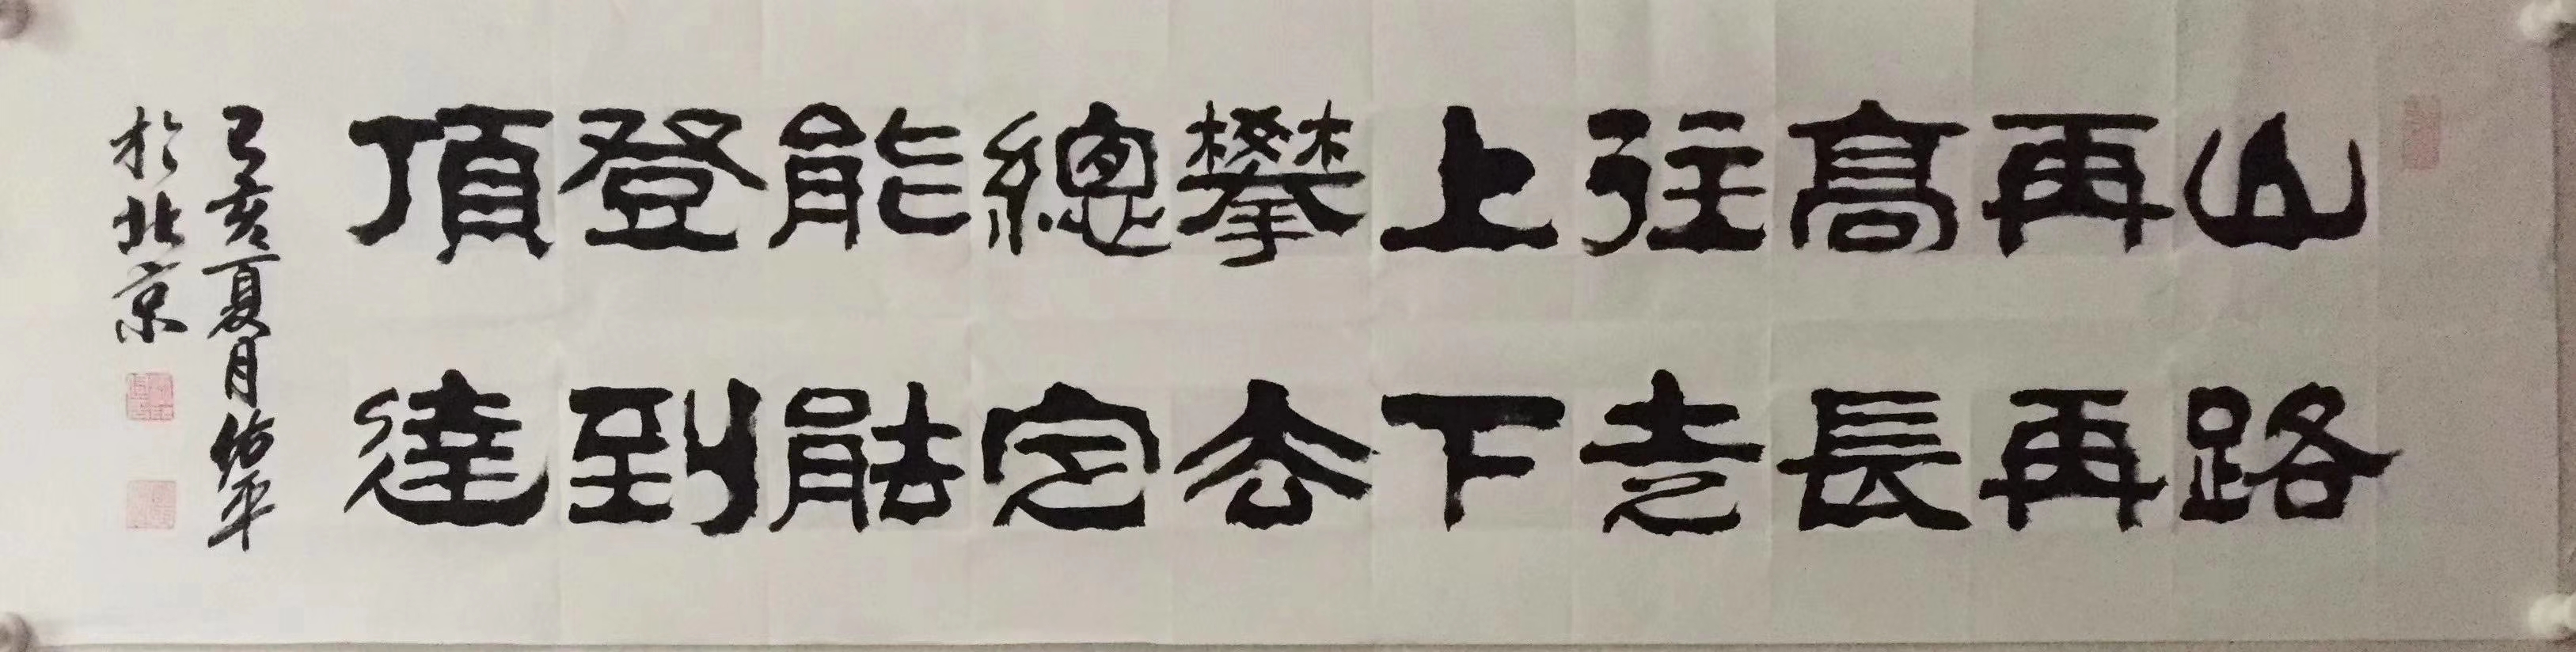 山再高往上攀總能登頂
路再長走下去定能到達
己亥夏月 平
於北京